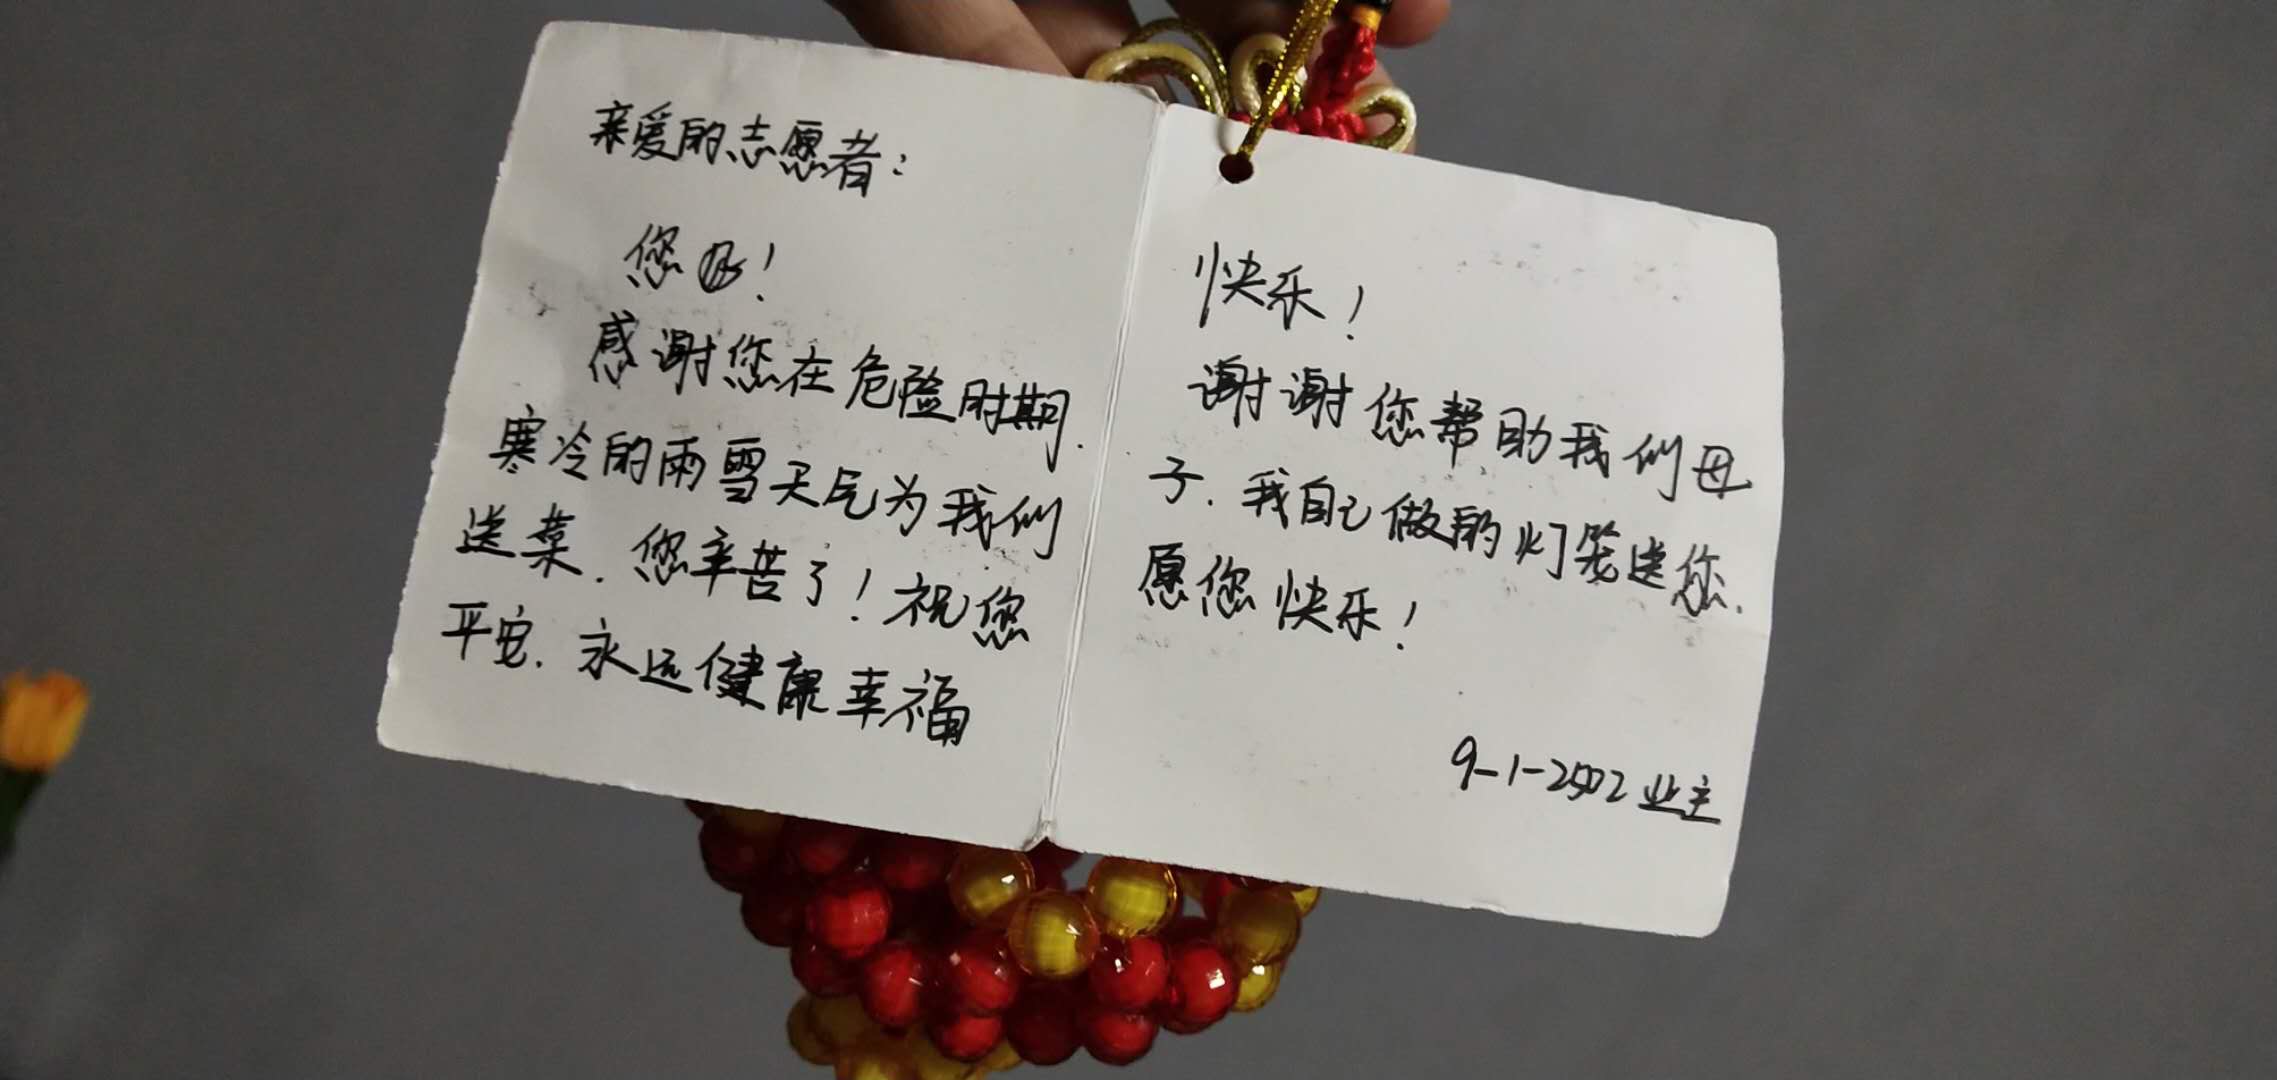 亲爱的志愿者：
您好！
感谢您在危险时期.
寒冷的雨雪天气为我们
送菜.您辛苦了！祝您
平安.永远健康幸福
快乐！
谢谢您帮助我们母
子.我自己做的灯笼送您.
愿您快乐！
9-1-2502业主